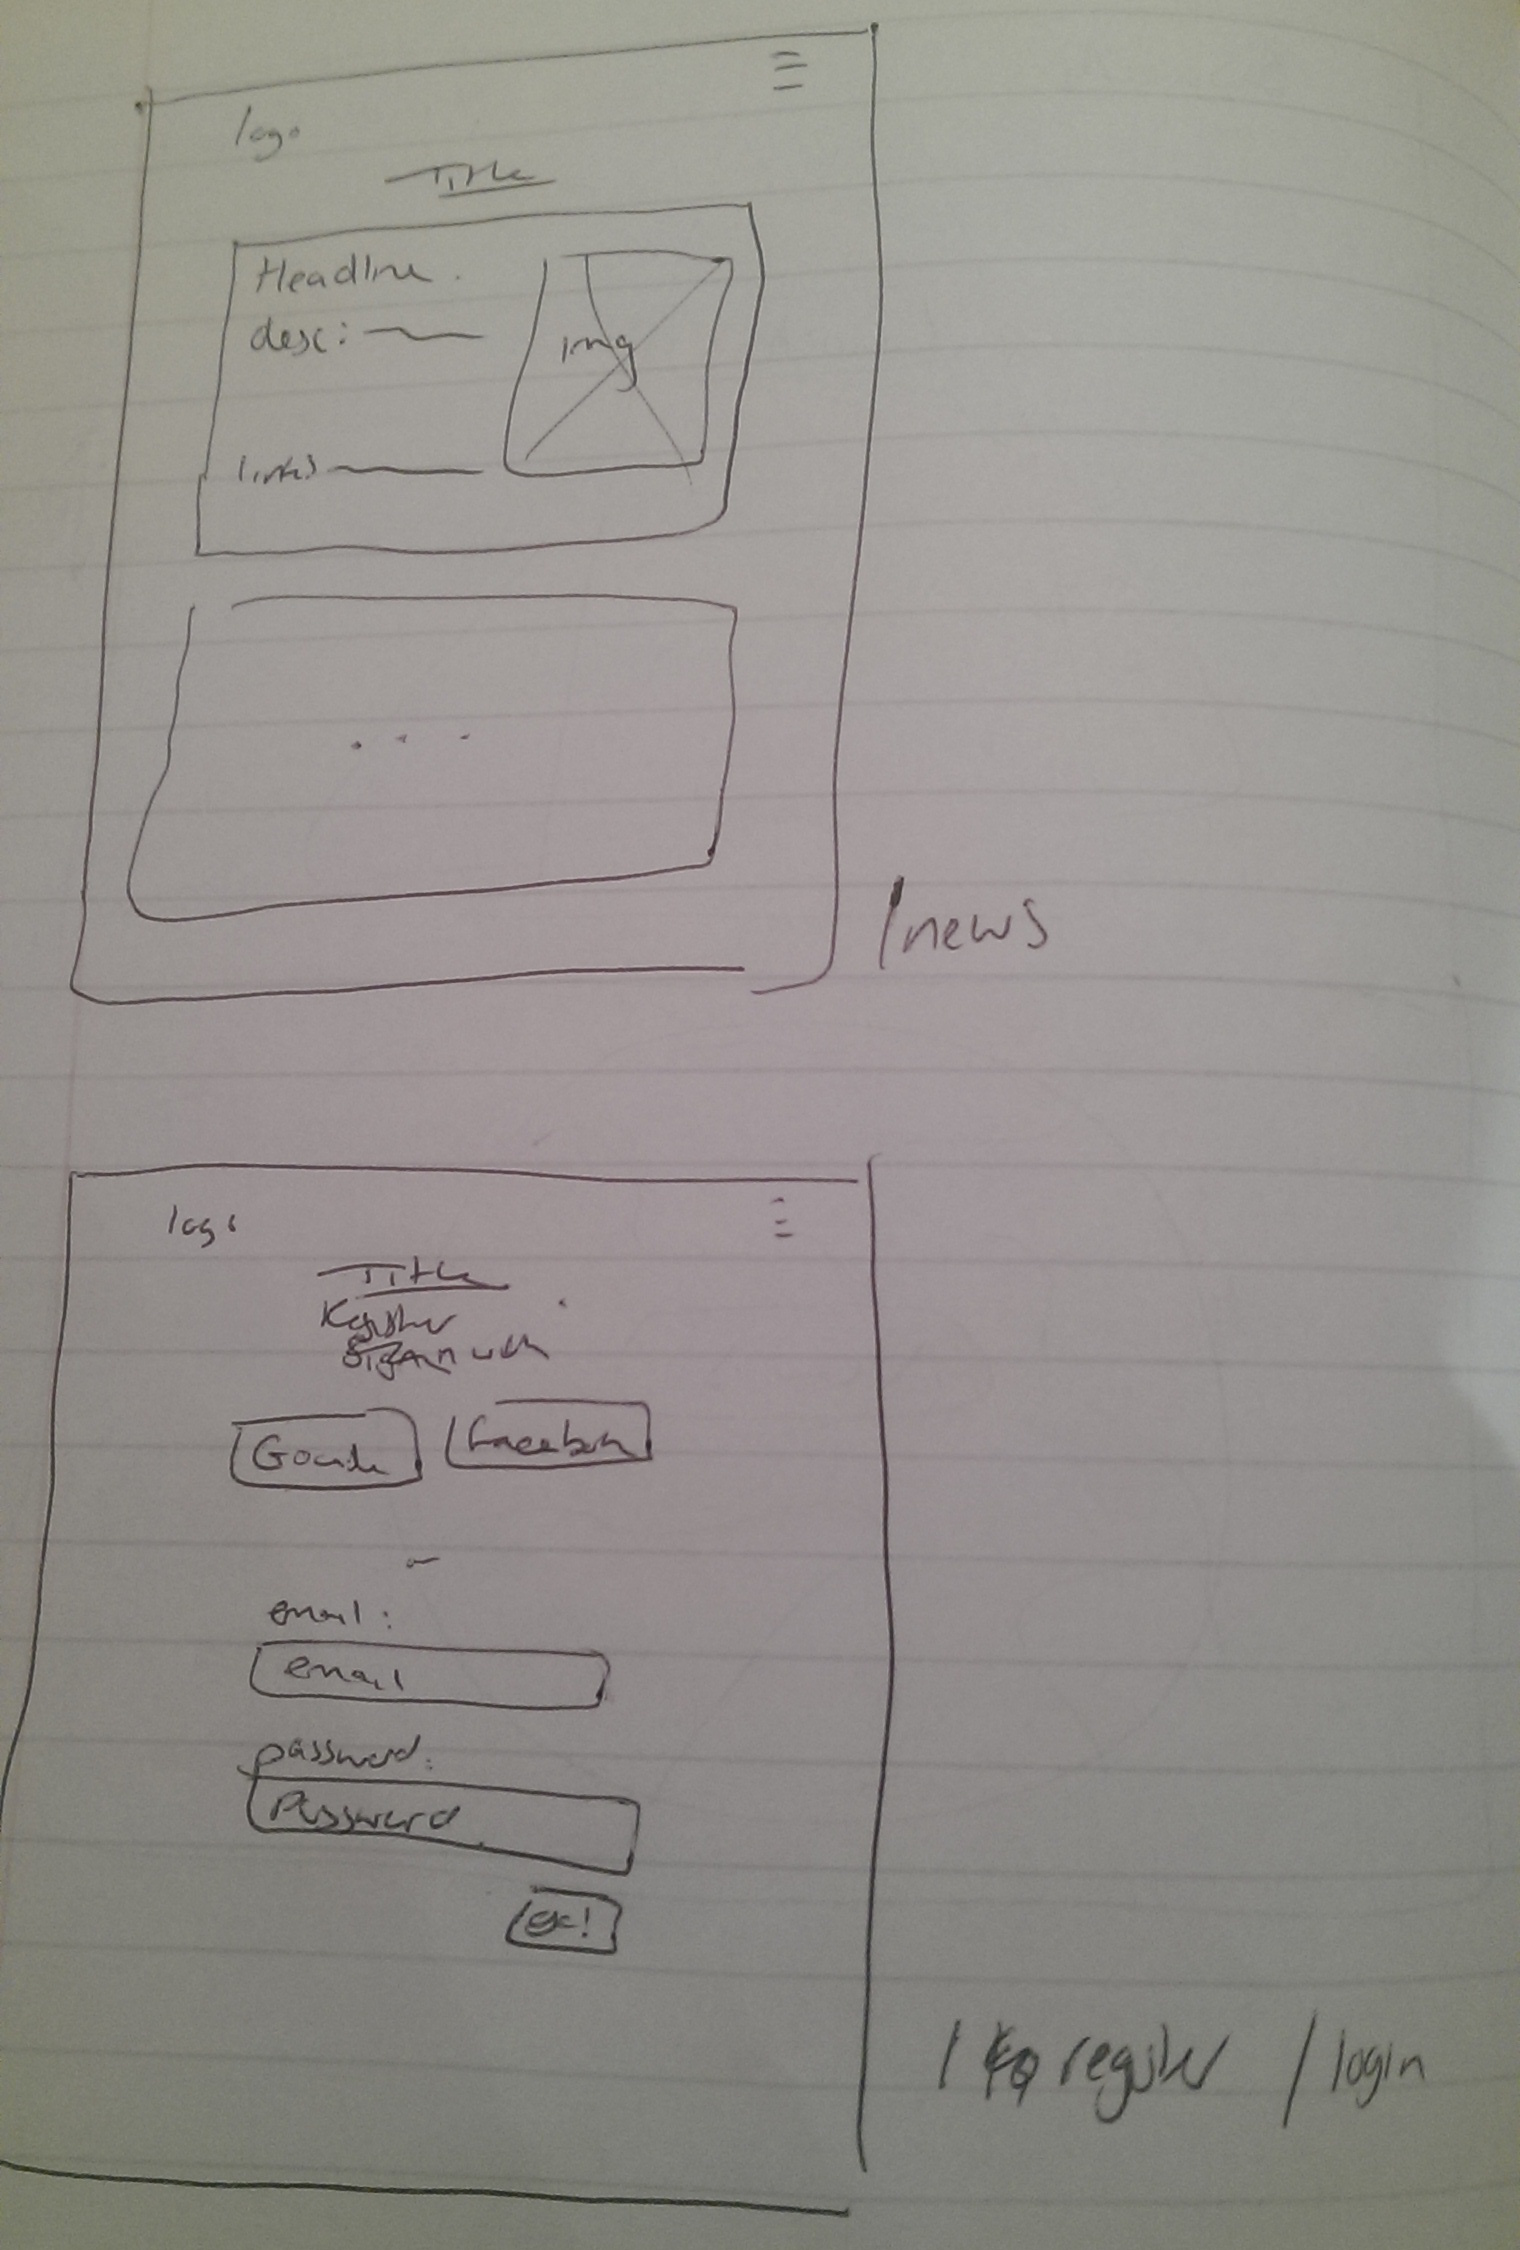 logo
Title
Headline.
desc:
img
links
...
/news
logo
Title
Register
with
Google
Facebook
email:
email
password:
Password
go!
/ register /login